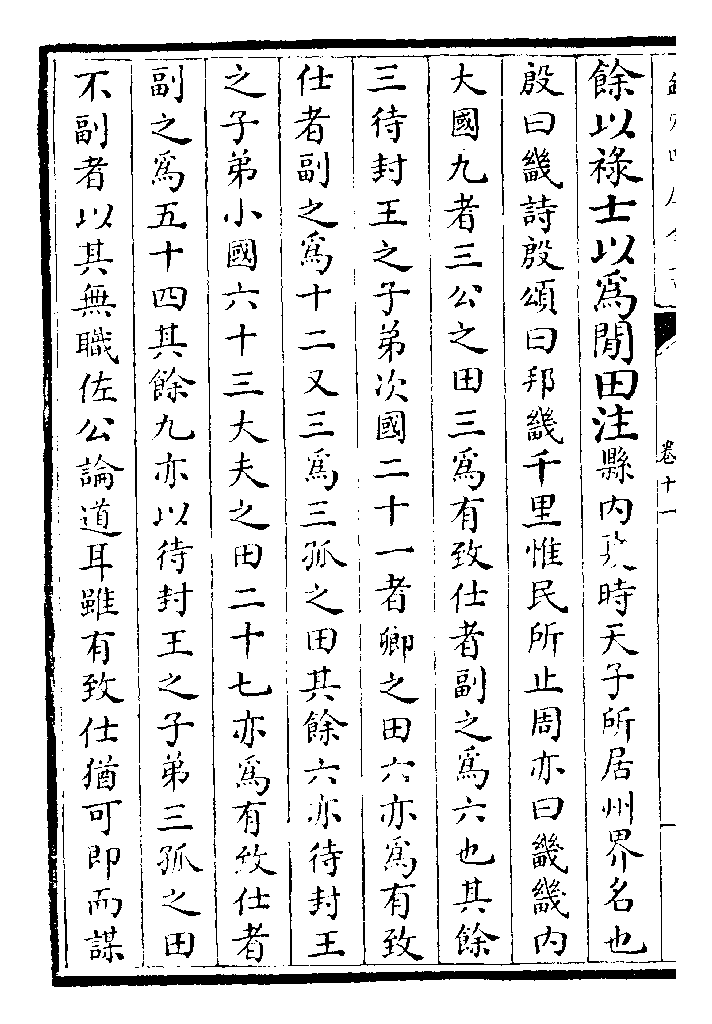 卷十一
餘以祿士以爲閒田注縣内夏時天子所居州界名也
殷曰畿詩殷頌曰邦畿千里惟民所止周亦曰畿畿内
大國九者三公之田三爲有致仕者副之爲六也其餘
三待封王之子弟次國二十一者卿之田六亦爲有致
仕者副之爲十二又三爲三孤之田其餘六亦待封王
之子弟小國六十三大夫之田二十七亦爲有致仕者
副之爲五十四其餘九亦以待封王之子弟三孤之田
不副者以其無職佐公論道耳雖有致仕猶可即而謀